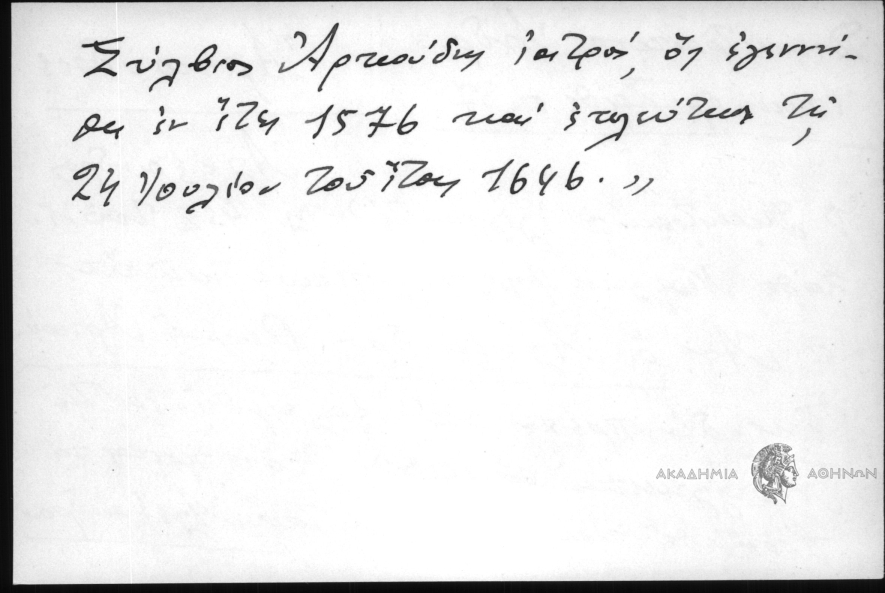 Σύλβιος Ἀρκούδης ἰατρός, ὃς ἐγεννή-
θη ἐν ἔτει 1576 καί ἐτελεύτησε τῇ
24 Ἰουλίου τοῦ ἔτους 1646. »
ΑΚΑΔΗΜΙΑ ΑΘΗΝΩΝ